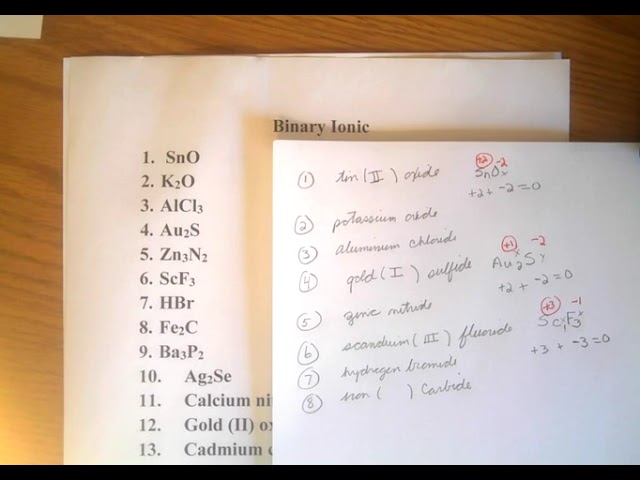 Binary Ionic
1. SnO
2. K₂O
3. AlCl₃
4. Au₂S
5. Zn₃N₂
6. ScF₃
7. HBr
8. Fe₂C
9. Ba₃P₂
10. Ag₂Se
11. Calcium ni
12. Gold (II) ox
13. Cadmium c
① tin (II) oxide
+2 -2
SnOₓ
+2 + -2 = 0
② potassium oxide
③ aluminum chloride
④ gold (I) sulfide
+1 -2
Au₂S
+2 + -2 = 0
⑤ zinc nitride
⑥ scandium (III) fluoride
+3 -1
Sc₁F₃
+3 + -3 = 0
⑦ hydrogen bromide
⑧ iron ( ) Carbide